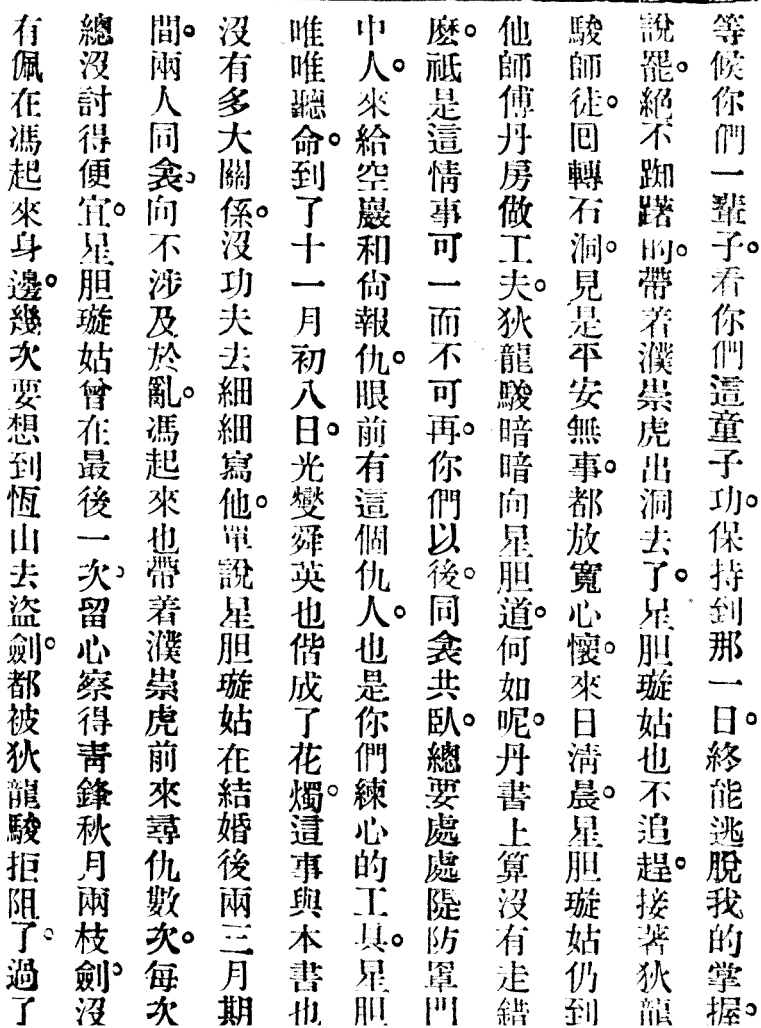 等候你們一輩子。看你們這童子功。保持到那一日。終能逃脫我的掌握。
說罷。絕不踟躇的。帶着濮崇虎出洞去了。星胆璇姑也不追趕。接著狄龍
駿師徒。回轉石洞。見是平安無事。都放寬心懷。來日淸晨。星胆璇姑仍到
他師傅丹房做工夫。狄龍駿暗暗向星胆道。何如呢。丹書上算沒有走錯
麽。祗是這情事可一而不可再。你們以後。同衾共臥。總要處處隄防罩門
中人。來給空巖和尙報仇。眼前有這個仇人。也是你們練心的工具。星胆
唯唯聽命。到了十一月初八日。光燮舜英也偕成了花燭。這事與本書也
沒有多大關係。沒功夫去細細寫他。單說星胆璇姑在結婚後兩三月期
間。兩人同衾。向不涉及於亂。馮起來也帶着濮崇虎前來尋仇數次。每次
總沒討得便宜。星胆璇姑曾在最後一次。留心察得靑鋒秋月兩枝劍。沒
有佩在馮起來身邊。幾次要想到恆山去盜劍。都被狄龍駿拒阻了。過了